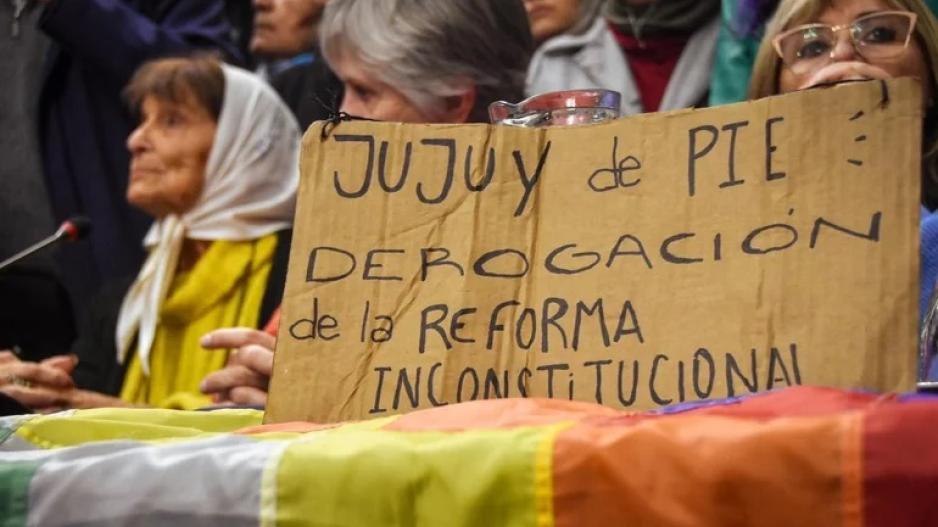 JUJUY de PIE
DEROGACIÓN
de la REFORMA
INCONSTITUCIONAL